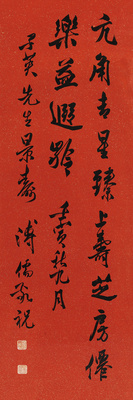 亢角青星臻上壽芝房僊
樂益遐齡
壬寅秋九月
子英先生景壽
溥儒敬祝